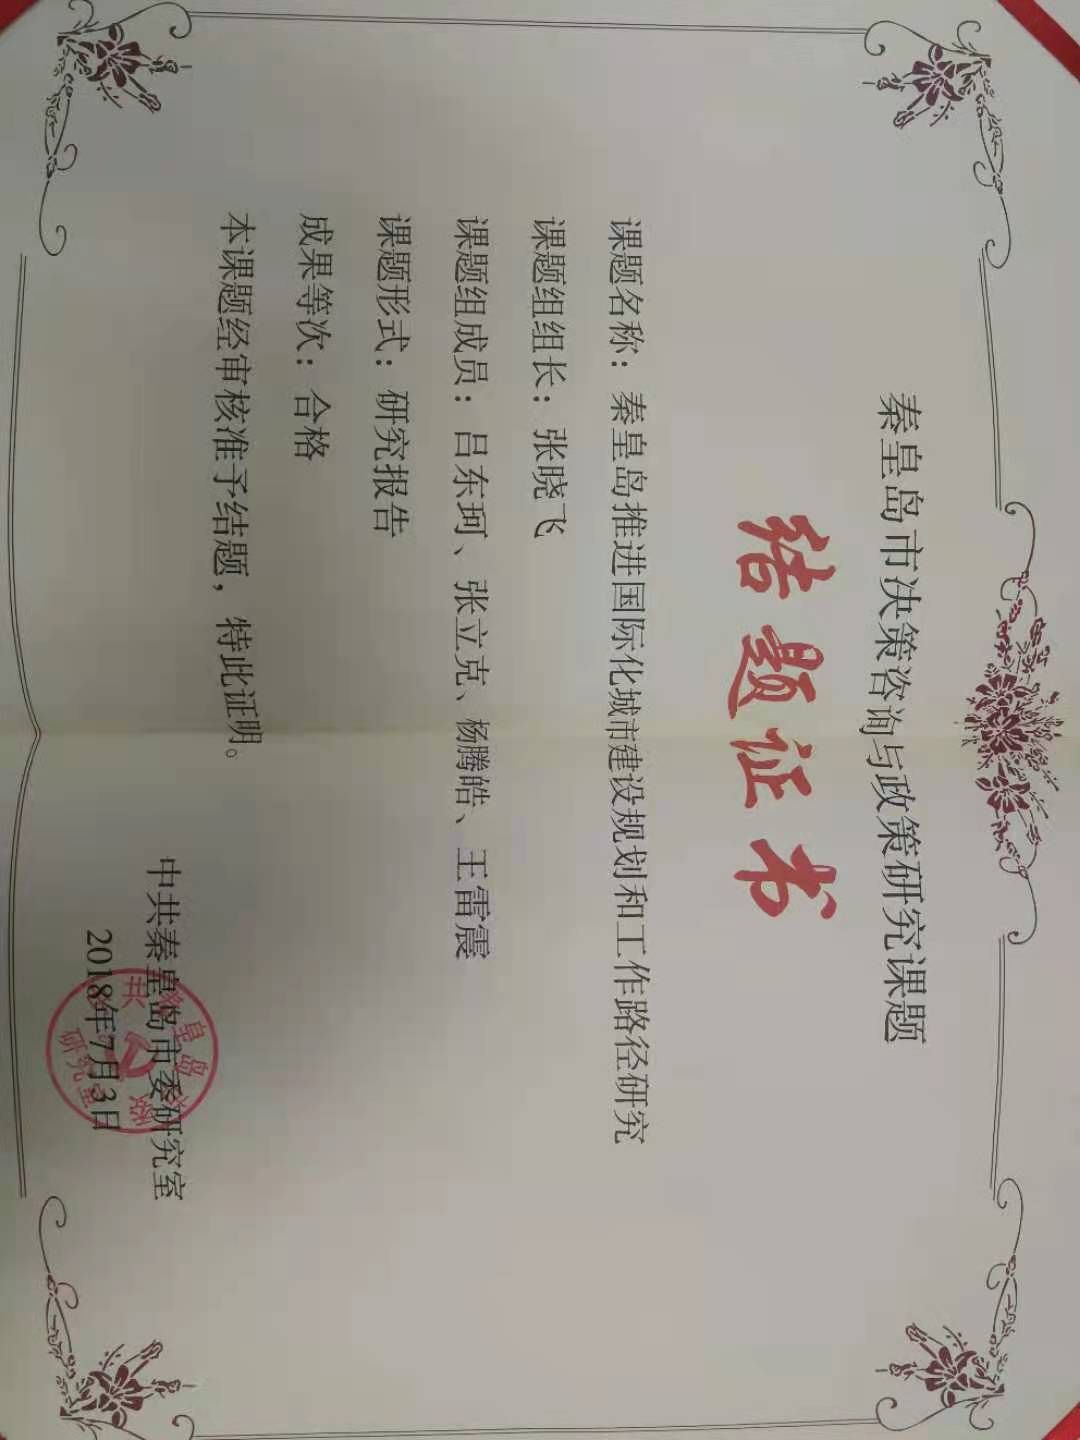 秦皇岛市决策咨询与政策研究课题
结题证书
课题名称：秦皇岛推进国际化城市建设规划和工作路径研究
课题组组长：张晓飞
课题组成员：吕东珂、张立克、杨腾皓、王雷震
课题形式：研究报告
成果等次：合格
本课题经审核准予结题，特此证明。
中共秦皇岛市委研究室
2018年7月3日